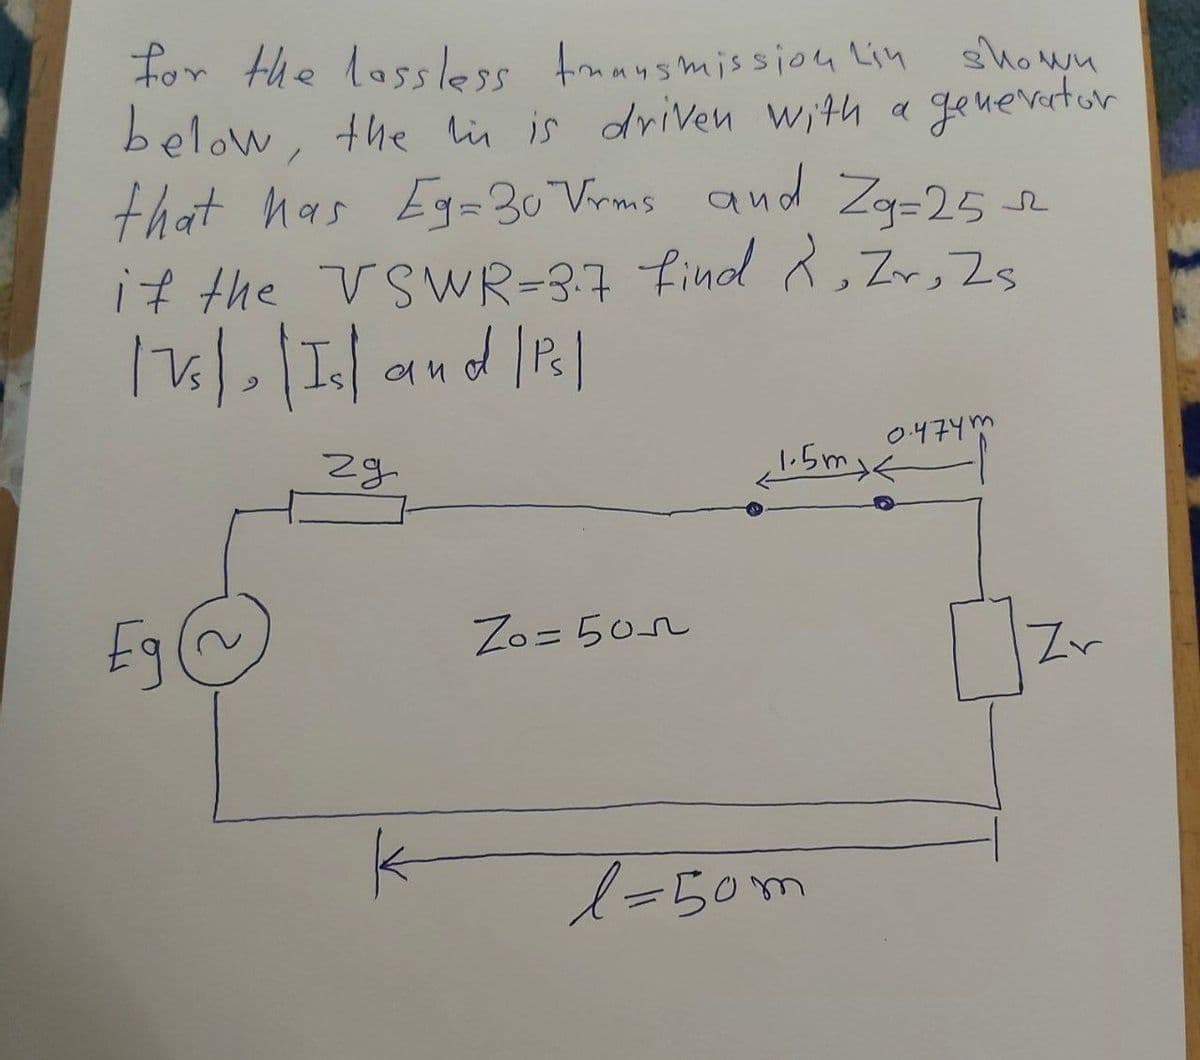 for the lossless transmission lin shown
below, the lin is driven with a generator
that has Eg=30 Vrms and Zg=25 Ω
if the VSWR=3.7 find λ, Zr, Zs
|Vs|, |Is| and |Ps|
0.474m
1.5m
Zg
Eg
~
Zo=50Ω
Zr
l=50m